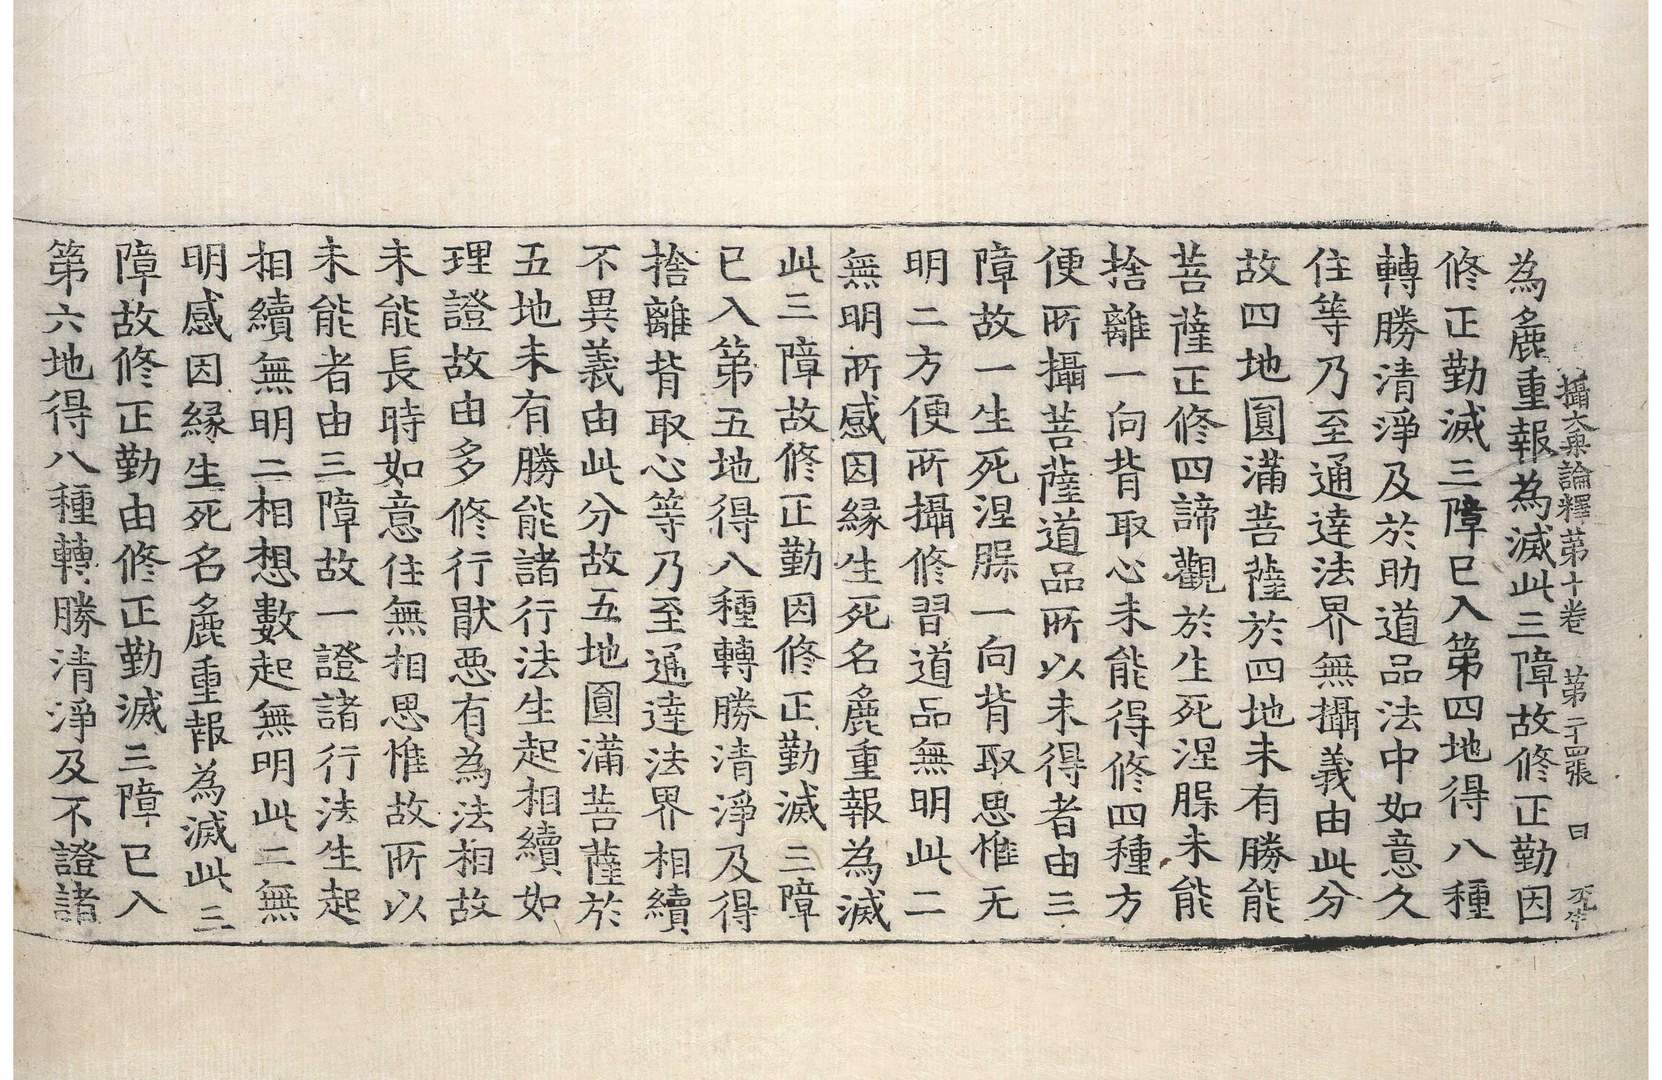 攝大乘論釋第十卷　第二十四張　曰
為麁重報為滅此三障故修正勤因
修正勤滅三障已入第四地得八種
轉勝清淨及於助道品法中如意久
住等乃至通達法界無攝義由此分
故四地圓滿菩薩於四地未有勝能
菩薩正修四諦觀於生死涅槃未能
捨離一向背取心未能得修四種方
便所攝菩薩道品所以未得者由三
障故一生死涅槃一向背取思惟无
明二方便所攝修習道品無明此二
無明所感因緣生死名麁重報為滅
此三障故修正勤因修正勤滅三障
已入第五地得八種轉勝清淨及得
捨離背取心等乃至通達法界相續
不異義由此分故五地圓滿菩薩於
五地未有勝能諸行法生起相續如
理證故由多修行猒惡有為法相故
未能長時如意住無相思惟故所以
未能者由三障故一證諸行法生起
相續無明二相想數起無明此二無
明感因緣生死名麁重報為滅此三
障故修正勤由修正勤滅三障已入
第六地得八種轉勝清淨及不證諸